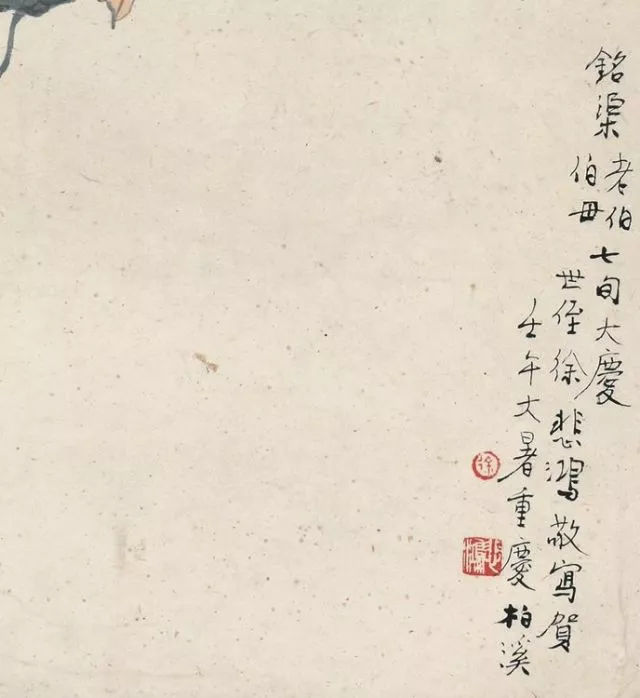 銘渠老伯伯母七旬大慶
世侄徐悲鴻敬寫賀
壬午大暑重慶柏溪
徐
悲鴻